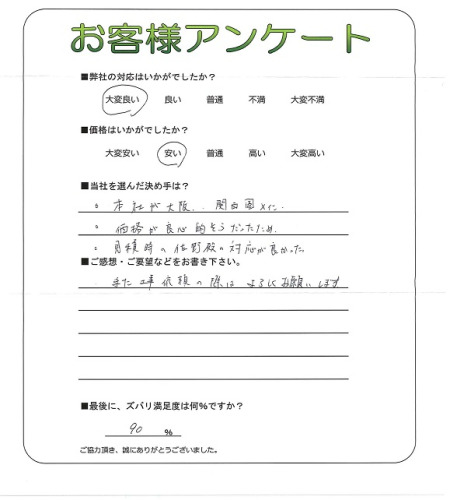 お客様アンケート
■弊社の対応はいかがでしたか？
大変良い 良い 普通 不満 大変不満
■価格はいかがでしたか？
大変安い 安い 普通 高い 大変高い
■当社を選んだ決め手は？
。本社が大阪、関西圏メイン.
。価格が良心的そうだったため.
。見積時の佐野殿の対応が良かった.
■ご感想・ご要望などをお書き下さい。
また工事依頼の際はよろしくお願いします
■最後に、ズバリ満足度は何%ですか？
90 %
ご協力頂き、誠にありがとうございました。